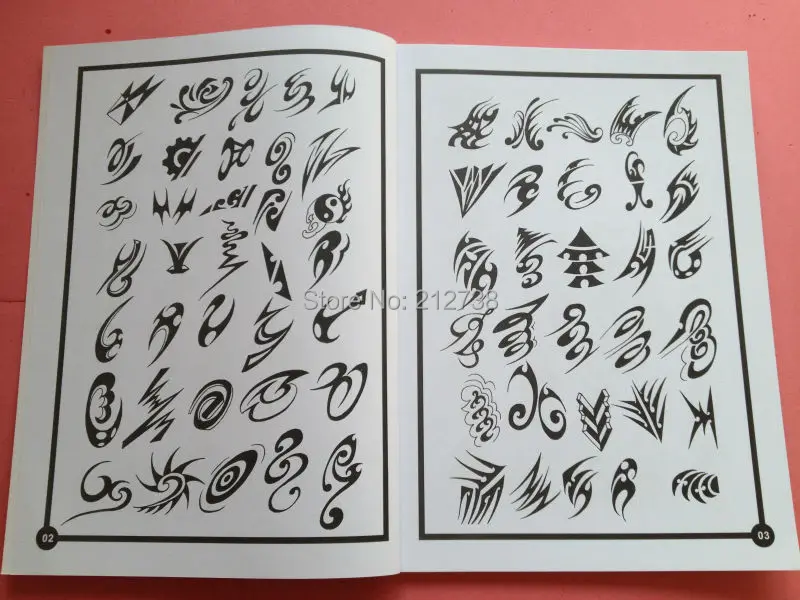 Store No: 212738
02
03